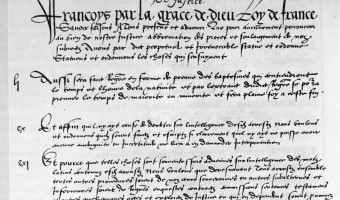 De justice
Francoys par la grace de dieu Roy de france
Savoir faisons a tous presens et advenir Que pour aucunement pourveoir
au bien de nostre justice abbreviation des proces et soulagement de noz
subgectz Avons par edit perpetuel et irrevocable statue et ordonne
Statuons et ordonnons les choses qui sensuivent
li
Aussi sera fait registre en forme de preuve des baptesmes qui contiendront
le temps et lheure de la nativite et par lextraict dudict registre se pourra
prouver le temps de majorite ou minorite et sera plaine foy a ceste fin
cx
Et affin quil ny ayt cause de doubter sur lintelligence desdits arrestz Nous voulons
et ordonnons quilz soient faictz et escriptz si clairement quil ny ayt ne puisse avoir
aucune ambiguite ou incertitude ne lieu a en demander interpretation
cxi
Et pource que telles choses sont souvent advenues sur lintelligence des motz
latins contenuz esdits arrestz Nous voulons que doresnavant tous arrestz ensemble
toutes autres procedures soient de noz cours souveraines ou autres subalternes et
inferieures soient de registres enquestes contractz commissions sentences testamens